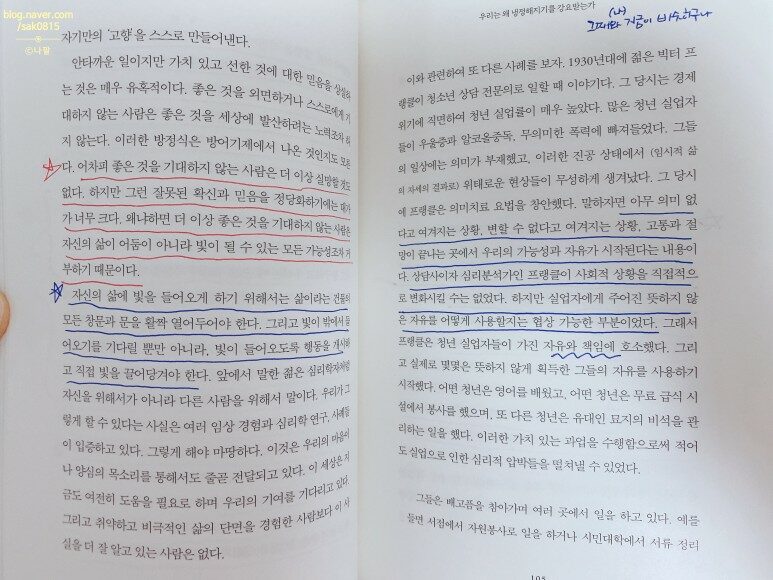 blog.naver.com
/sak0815
ⓒ나팔
자기만의 '고향'을 스스로 만들어낸다.
안타까운 일이지만 가치 있고 선한 것에 대한 믿음을 상실하
는 것은 매우 유혹적이다. 좋은 것을 외면하거나 스스로에게 기
대하지 않는 사람은 좋은 것을 세상에 발산하려는 노력조차 하
지 않는다. 이러한 방정식은 방어기제에서 나온 것인지도 모른
다. 어차피 좋은 것을 기대하지 않는 사람은 더 이상 실망할 것도
없다. 하지만 그런 잘못된 확신과 믿음을 정당화하기에는 대가
가 너무 크다. 왜냐하면 더 이상 좋은 것을 기대하지 않는 사람은
자신의 삶이 어둠이 아니라 빛이 될 수 있는 모든 가능성조차 거
부하기 때문이다.
자신의 삶에 빛을 들어오게 하기 위해서는 삶이라는 건물의
모든 창문과 문을 활짝 열어두어야 한다. 그리고 빛이 밖에서 들
어오기를 기다릴 뿐만 아니라, 빛이 들어오도록 행동을 개시하
고 직접 빛을 끌어당겨야 한다. 앞에서 말한 젊은 심리학자처럼
자신을 위해서가 아니라 다른 사람을 위해서 말이다. 우리가 그
렇게 할 수 있다는 사실은 여러 임상 경험과 심리학 연구, 사례들
이 입증하고 있다. 그렇게 해야 마땅하다. 이것은 우리의 마음이
나 양심의 목소리를 통해서도 줄곧 전달되고 있다. 이 세상은 지
금도 여전히 도움을 필요로 하며 우리의 기여를 기다리고 있다.
그리고 취약하고 비극적인 삶의 단면을 경험한 사람보다 이 사
실을 더 잘 알고 있는 사람은 없다.
우리는 왜 냉정해지기를 강요받는가
(나)
그때와 지금이 비슷하구나
이와 관련하여 또 다른 사례를 보자. 1930년대에 젊은 빅터 프
랭클이 청소년 상담 전문의로 일할 때 이야기다. 그 당시는 경제
위기에 직면하여 청년 실업률이 매우 높았다. 많은 청년 실업자
들이 우울증과 알코올중독, 무의미한 폭력에 빠져들었다. 그들
의 일상에는 의미가 부재했고, 이러한 진공 상태에서 (임시적 삶
의 자세의 결과로) 위태로운 현상들이 무성하게 생겨났다. 그 당시
에 프랭클은 의미치료 요법을 창안했다. 말하자면 아무 의미 없
다고 여겨지는 상황, 변할 수 없다고 여겨지는 상황, 고통과 절
망이 끝나는 곳에서 우리의 가능성과 자유가 시작된다는 내용이
다. 상담사이자 심리분석가인 프랭클이 사회적 상황을 직접적으
로 변화시킬 수는 없었다. 하지만 실업자에게 주어진 뜻하지 않
은 자유를 어떻게 사용할지는 협상 가능한 부분이었다. 그래서
프랭클은 청년 실업자들이 가진 자유와 책임에 호소했다. 그리
고 실제로 몇몇은 뜻하지 않게 획득한 그들의 자유를 사용하기
시작했다. 어떤 청년은 영어를 배웠고, 어떤 청년은 무료 급식 시
설에서 봉사를 했으며, 또 다른 청년은 유대인 묘지의 비석을 관
리하는 일을 했다. 이러한 가치 있는 과업을 수행함으로써 적어
도 실업으로 인한 심리적 압박들을 떨쳐낼 수 있었다.
그들은 배고픔을 참아가며 여러 곳에서 일을 하고 있다. 예를
들면 서점에서 자원봉사로 일을 하거나 시민대학에서 서류 정리
105